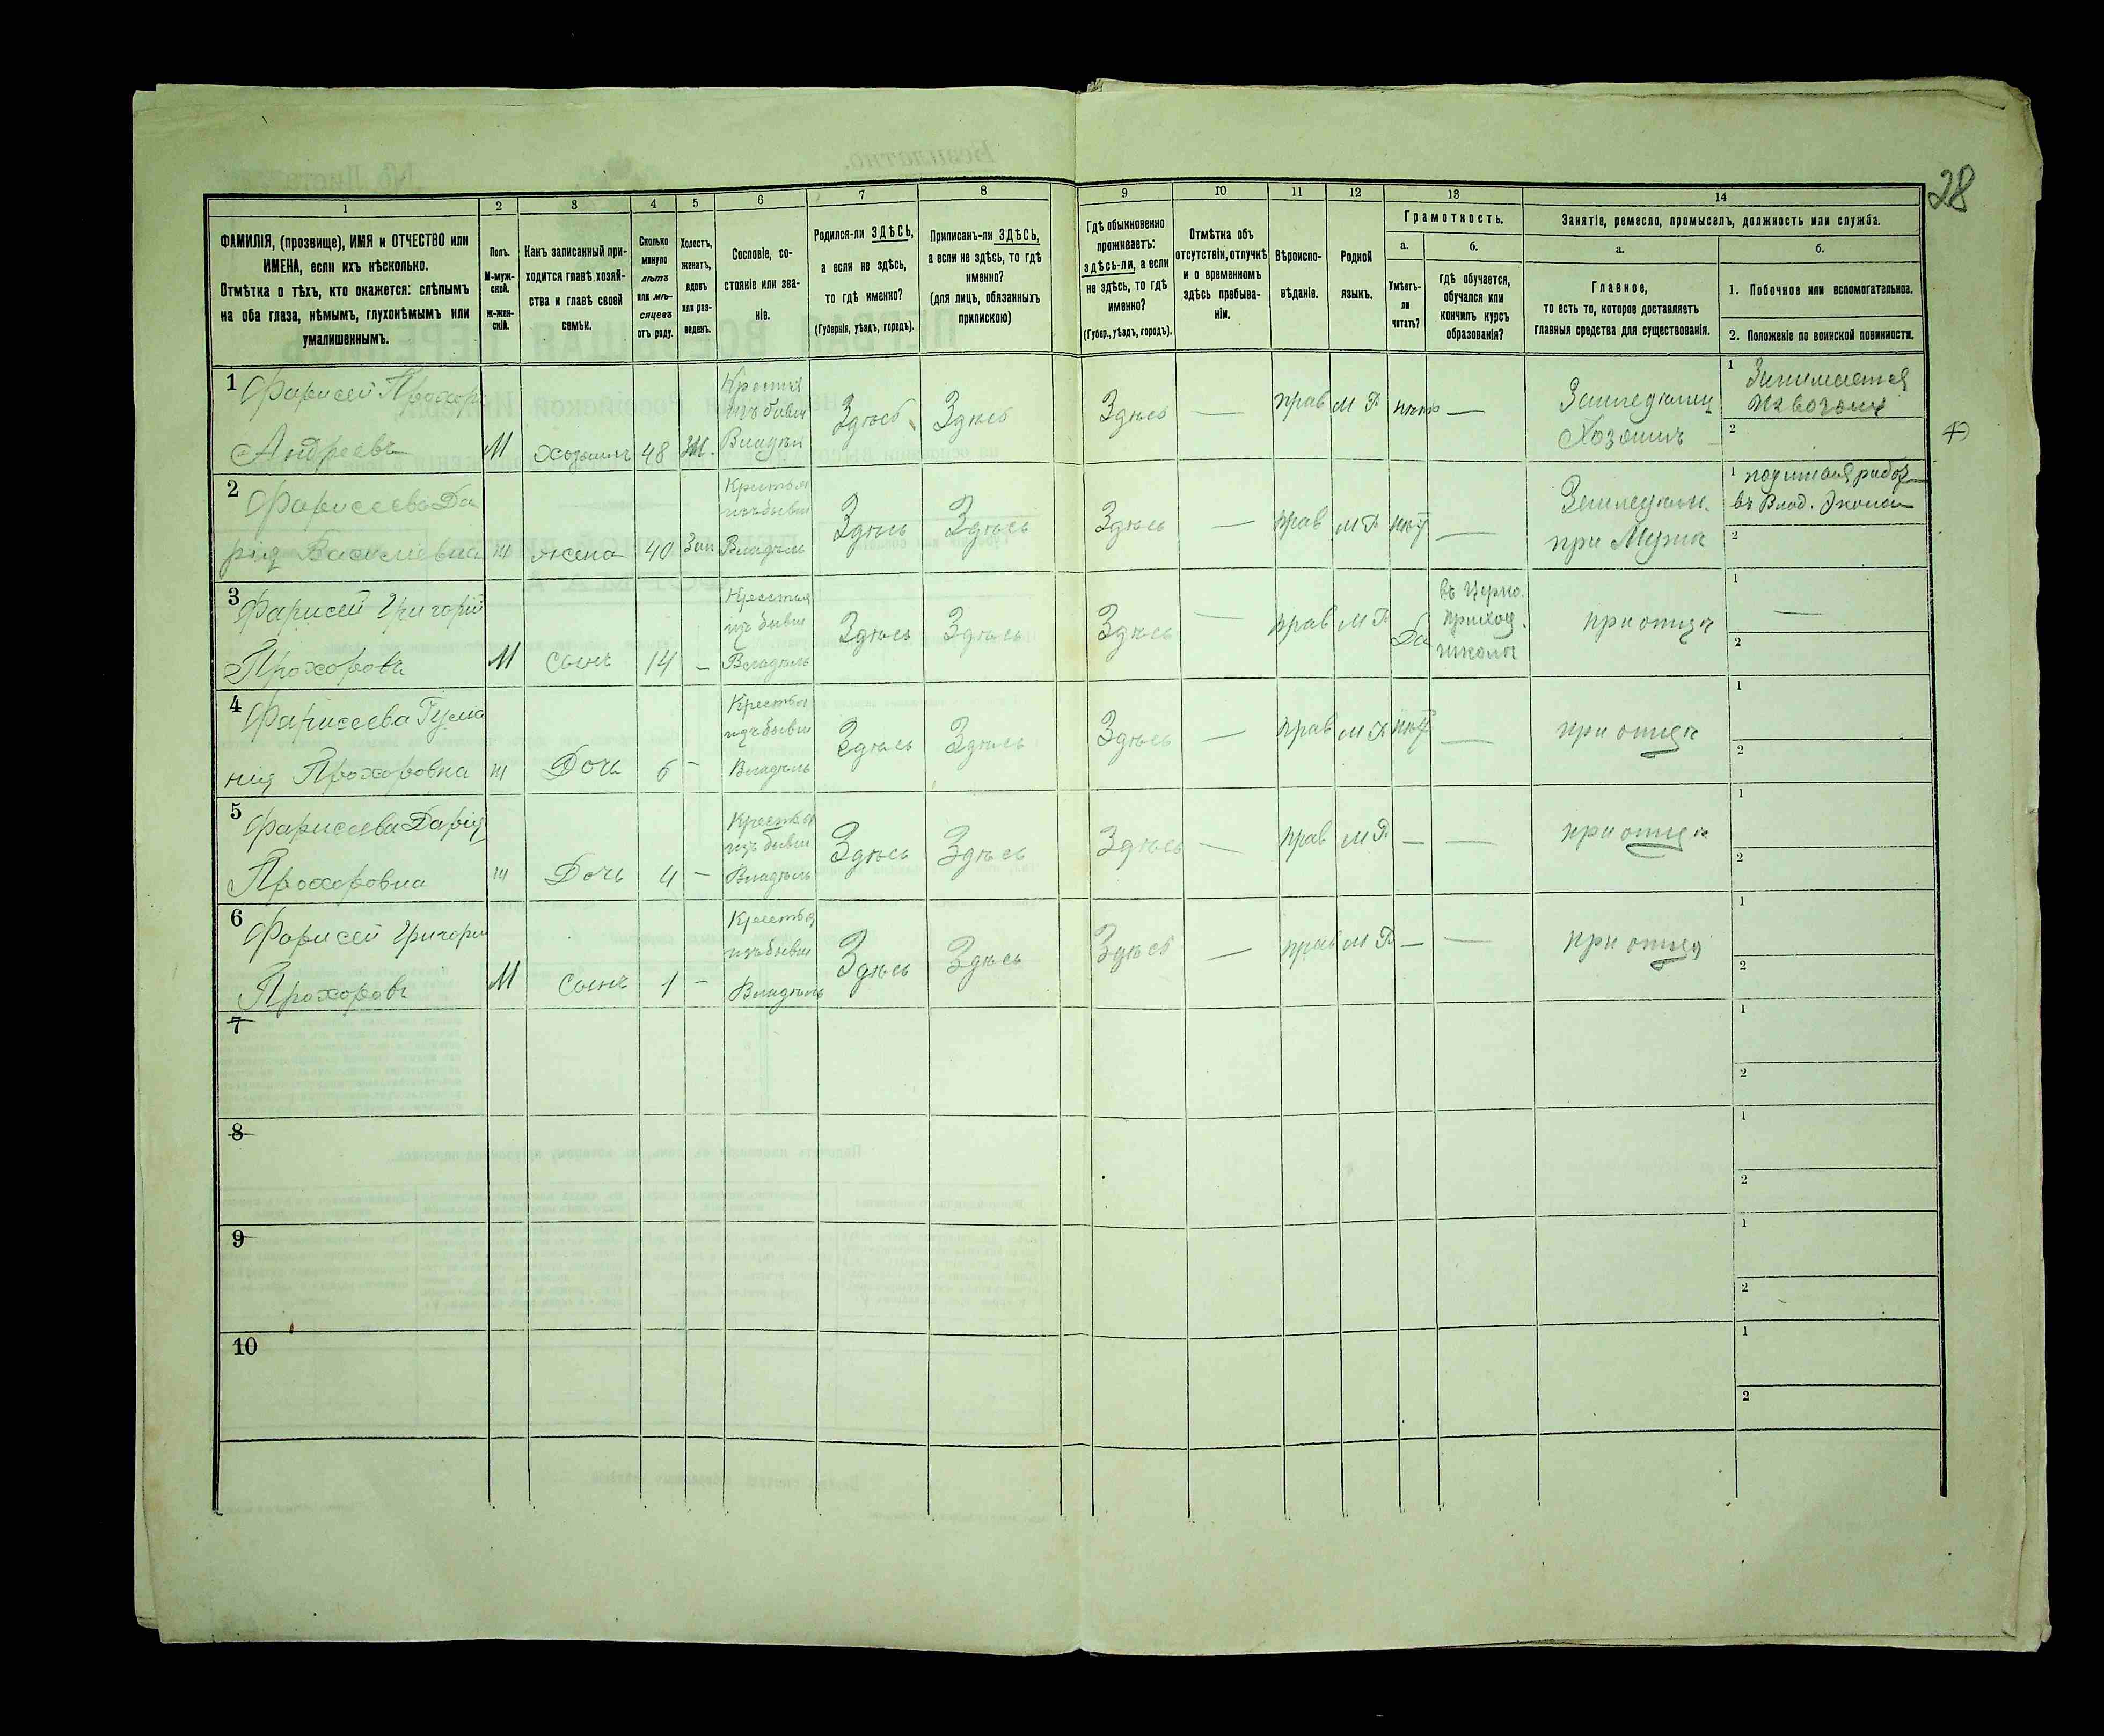 28
1 2 3 4 5 6 7 8 9 10 11 12 13 14
ФАМИЛІЯ, (прозвище), ИМЯ и ОТЧЕСТВО или
ИМЕНА, если ихъ нѣсколько.
Отмѣтка о тѣхъ, кто окажется: слѣпымъ
на оба глаза, нѣмымъ, глухонѣмымъ или
умалишеннымъ.
Полъ.
М-муж-
ской.
ж-жен-
скій.
Какъ записанный при-
ходится главѣ хозяй-
ства и главѣ своей
семьи.
Сколько
минуло
лѣтъ
или мѣ-
сяцевъ
отъ роду.
Холостъ,
женатъ,
вдовъ
или раз-
веденъ.
Сословіе, со-
стояніе или зва-
ніе.
Родился-ли ЗДѢСЬ,
а если не здѣсь,
то гдѣ именно?
(Губернія, уѣздъ, городъ).
Приписанъ-ли ЗДѢСЬ,
а если не здѣсь, то гдѣ
именно?
(для лицъ, обязанныхъ
припискою)
Гдѣ обыкновенно
проживаетъ:
здѣсь-ли, а если
не здѣсь, то гдѣ
именно?
(Губер., уѣздъ, городъ).
Отмѣтка объ
отсутствіи, отлучкѣ
и о временномъ
здѣсь пребыва-
ніи.
Вѣроиспо-
вѣданіе.
Родной
языкъ.
Грамотность.
а.
Умѣетъ-
ли
читать?
б.
гдѣ обучается,
обучался или
кончилъ курсъ
образованія?
Занятіе, ремесло, промыселъ, должность или служба.
а.
Главное,
то есть то, которое доставляетъ
главныя средства для существованія.
б.
1. Побочное или вспомогательное.
2. Положеніе по воинской повинности.
1 Фарисей Прохоръ
Андреевъ
М хозяинъ 48
Здѣсь Здѣсь Здѣсь — прав м Р —
Хозяинъ
1 Занимается
2
2 Фарисеева Да
рія Василіевна
ж жена 40 Зам
Крестья
изъ бывш
Владѣль
Здѣсь Здѣсь Здѣсь — прав м Р нѣт —
Земледѣл.
при Мужѣ
1
въ Влад. Эконом
2
3 Фарисей Григорій
Прохоровъ
М сынъ 14 —
Крестья
изъ бывш
Владѣль
Здѣсь Здѣсь Здѣсь — прав м Р Да
въ Церко.
приход.
школѣ
при отцѣ
1 —
2
4 Фарисеева
Прохоровна
ж Дочь 6 —
Крестья
изъ бывш
Владѣль
Здѣсь Здѣсь Здѣсь — прав м Р нѣт —
при отцѣ
1
2
5 Фарисеева Дарія
Прохоровна
ж Дочь 4 —
Крестья
изъ бывш
Владѣль
Здѣсь Здѣсь Здѣсь — прав м Р — —
при отцѣ
1
2
6 Фарисей Григори
Прохоровъ
М сынъ 1 —
Крестья
изъ бывш
Владѣль
Здѣсь Здѣсь Здѣсь — прав м Р — —
при отцѣ
1
2
7
1
2
8
1
2
9
1
2
10
1
2